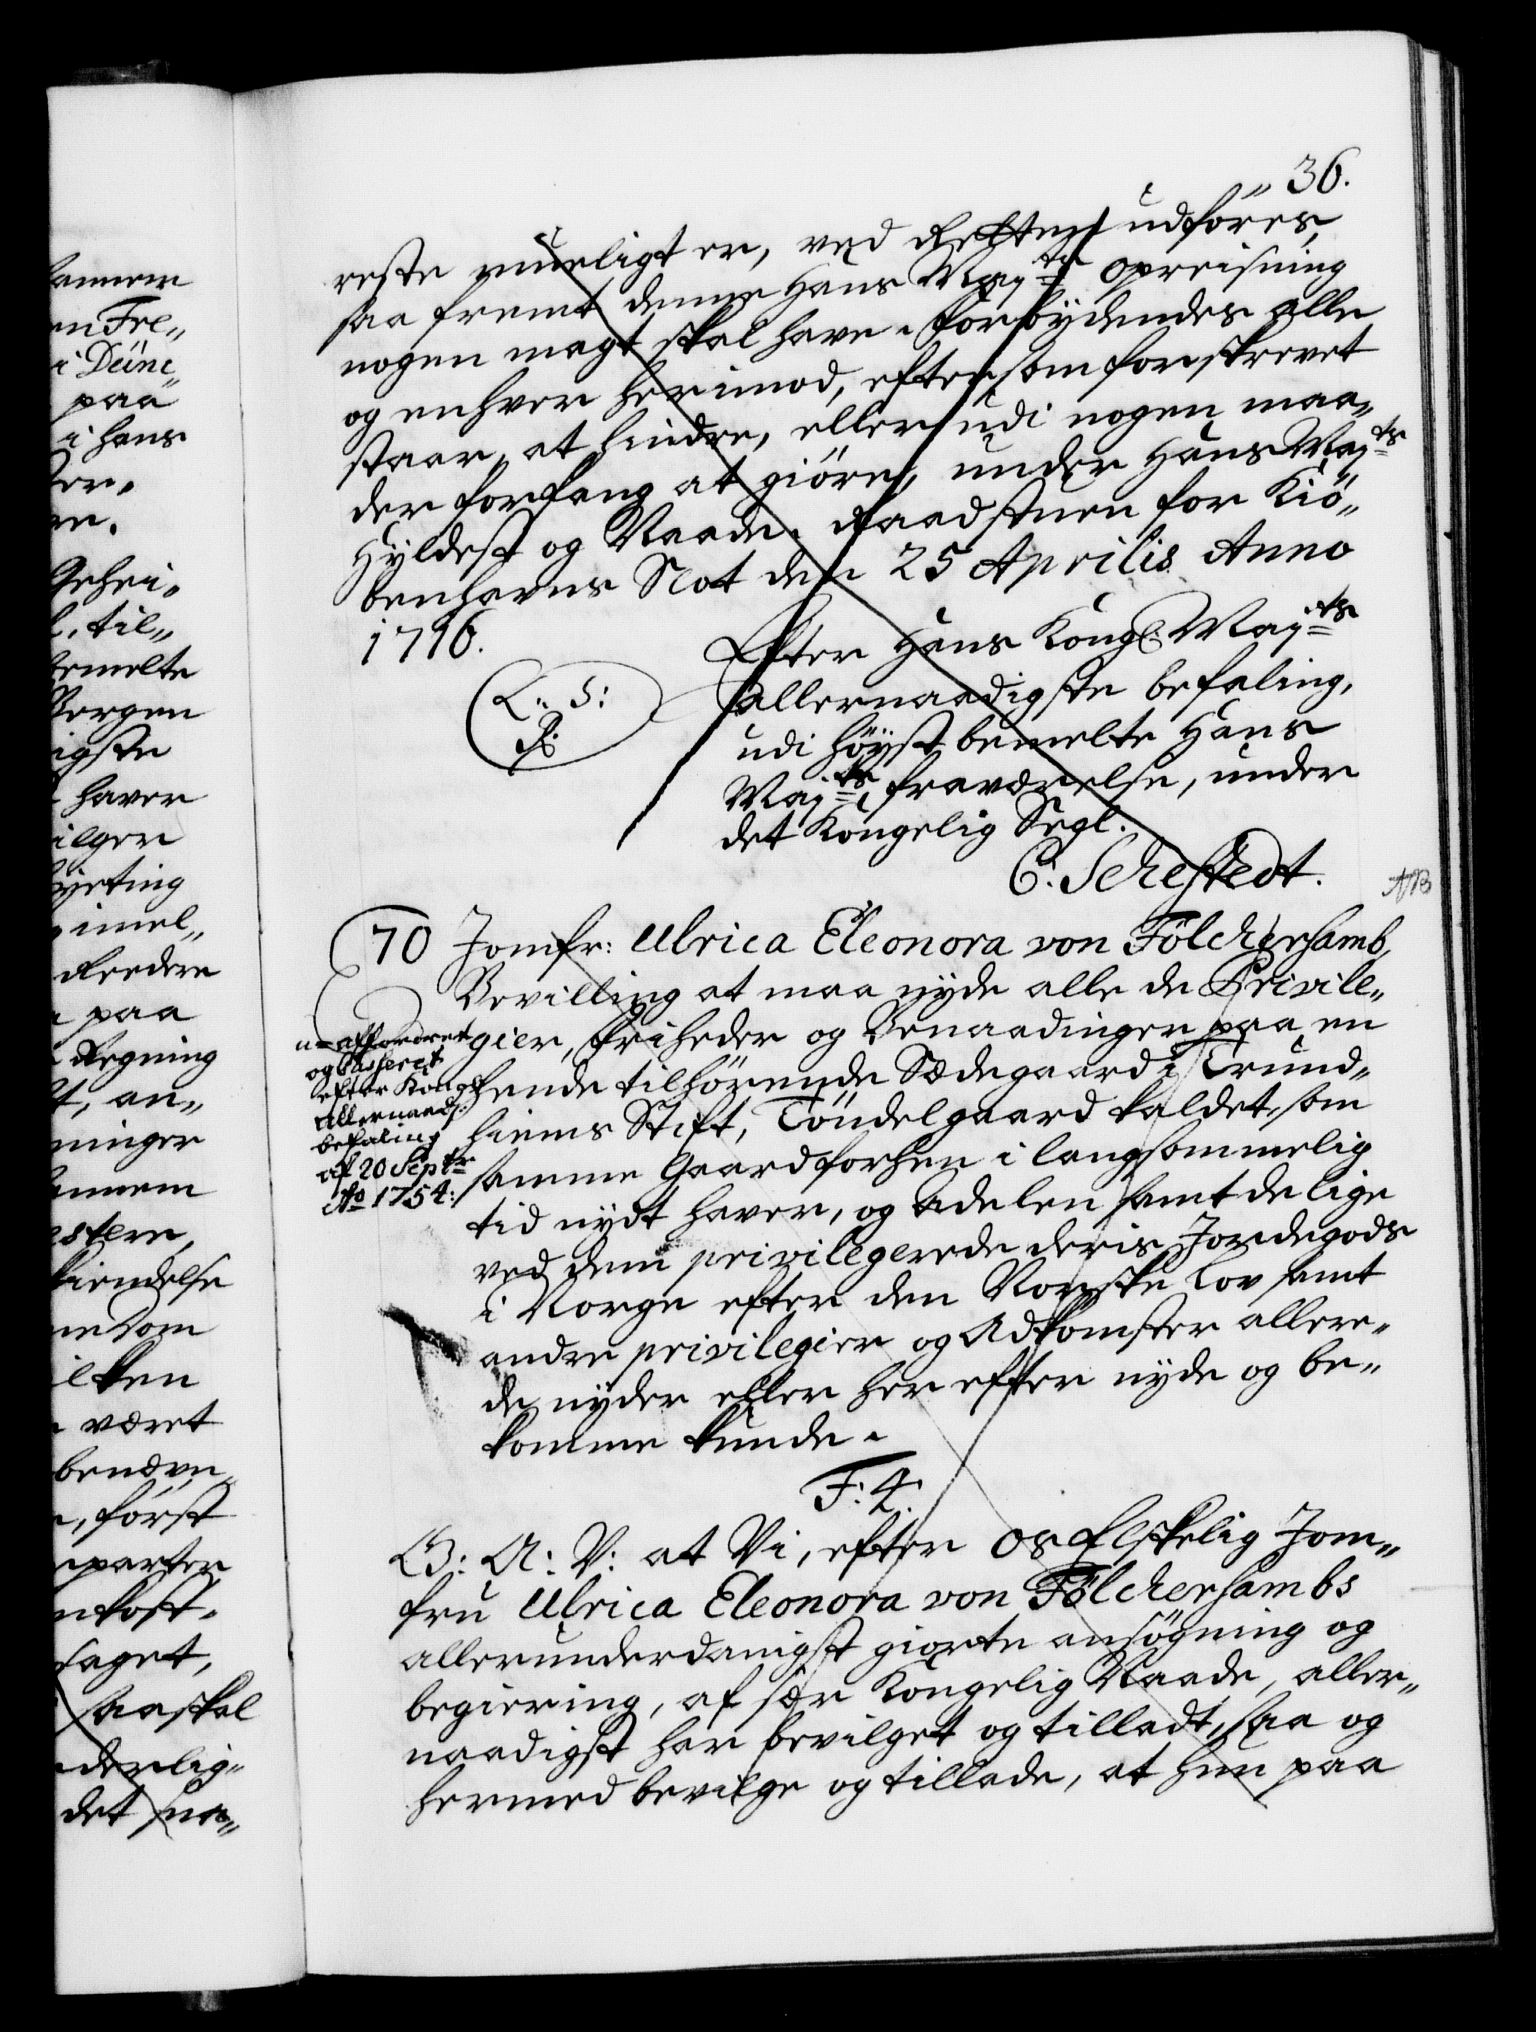 36.
reste mueligt er, ved Retten udföres,
saa fremt denne Hans Maj:ts opreisning
nogen magt skal have. Forbydendes alle
og enhver herimod, eftersom forskrevet
staar, at hindre, eller udi nogen maa„
der forfang at giöre, under Hans Maj:ts
Hyldest og Naade. Raadstuen for Kiö„
benhavns Slot den 25 Aprilis Anno
1716.
Efter Hans Kongl: Maj:ts
allernaadigste befaling,
udi höyst bemelte Hans
Maj:ts fraværelse, under
det Kongelig Segl.
L: S:
R.
C: Sehestedt.
NB
70 Jomfr: Ulrica Eleonora von Fölckersamb,
Bevilling at maa nyde alle de Privile„
gier, friheder og Benaadinger paa en
hende tilhörende Sædegaard i Trund„
hiems Stift, Töndelgaard kaldet, som
samme Gaard forhen i langsommelig
tid nydt haver, og Adelen samt de lige
ved dem privilegerede deris Jordegods
i Norge efter den Norske Lov samt
andre privilegier og Adkomster allere„
de nyder eller her efter nyde og be„
komme kunde.
u-affordret
og Casserit
efter Kongl:
allernaad:
befaling
af 20 Sept:
Ao 1754:
F: 4.
G: A: V: at Vi, efter os Elskelig Jom„
fru Ulrica Eleonora von Fölckersambs
allerunderdanigst giorte ansögning og
begiering, af sær Kongelig Naade, aller„
naadigst har bevilget og tilladt, saa og
hermed bevilge og tillade, at hun paa
annem
en Fre„
i Deine„
paa
i hans
er,
en.
Gehei„
til„
bemelte
Bergen
igste
haver
ilger
imel„
Reedere
paa
Regning
t, an„
ninger
annem
estere,
kiendelse
ne Dom
ilken
været
benævn
, först
parter
nkost„
saget,
saa skal
derlig„
det sna„